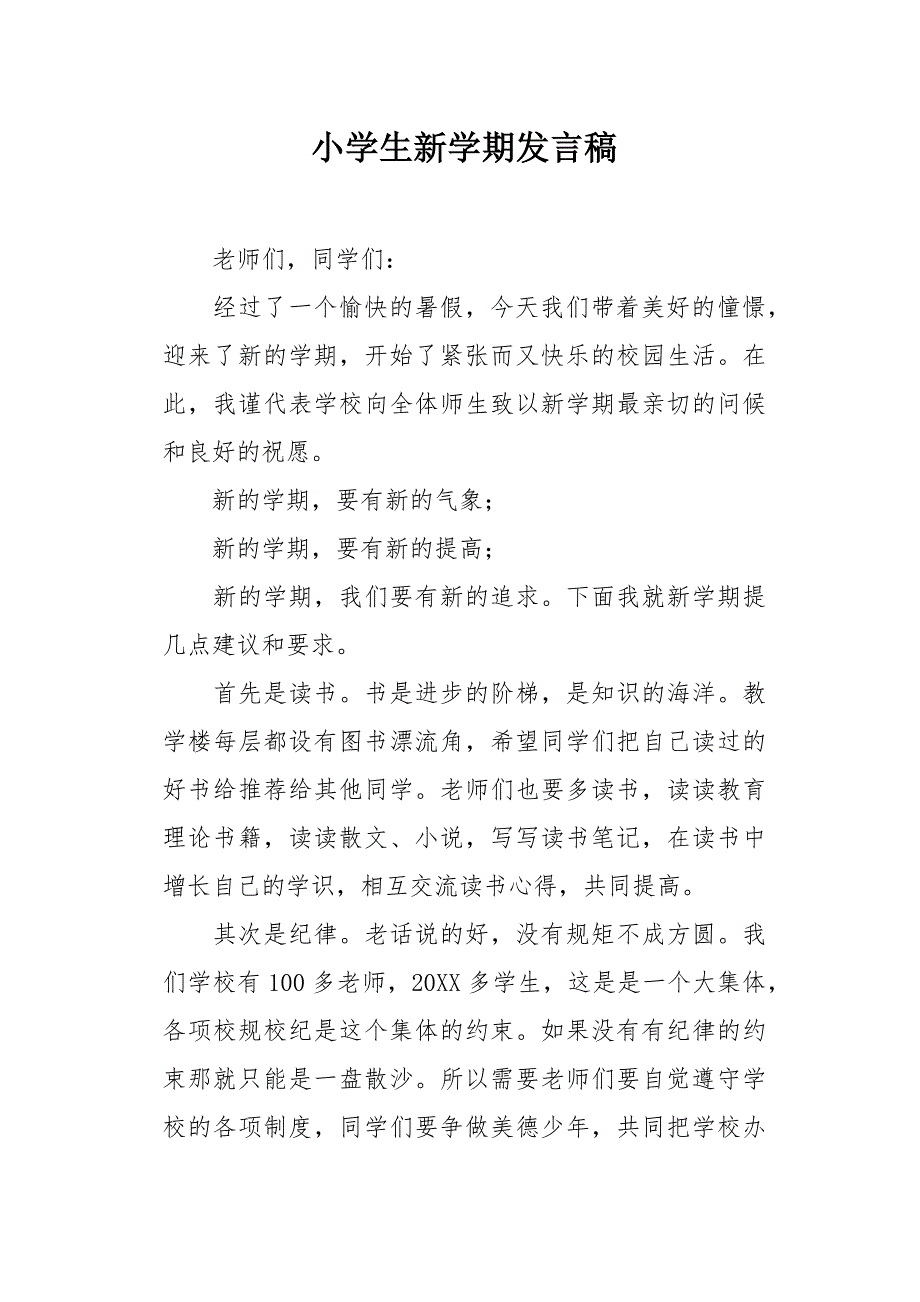 小学生新学期发言稿
老师们，同学们：
经过了一个愉快的暑假，今天我们带着美好的憧憬，
迎来了新的学期，开始了紧张而又快乐的校园生活。在
此，我谨代表学校向全体师生致以新学期最亲切的问候
和良好的祝愿。
新的学期，要有新的气象；
新的学期，要有新的提高；
新的学期，我们要有新的追求。下面我就新学期提
几点建议和要求。
首先是读书。书是进步的阶梯，是知识的海洋。教
学楼每层都设有图书漂流角，希望同学们把自己读过的
好书给推荐给其他同学。老师们也要多读书，读读教育
理论书籍，读读散文、小说，写写读书笔记，在读书中
增长自己的学识，相互交流读书心得，共同提高。
其次是纪律。老话说的好，没有规矩不成方圆。我
们学校有 100 多老师，20XX 多学生，这是是一个大集体，
各项校规校纪是这个集体的约束。如果没有有纪律的约
束那就只能是一盘散沙。所以需要老师们要自觉遵守学
校的各项制度，同学们要争做美德少年，共同把学校办